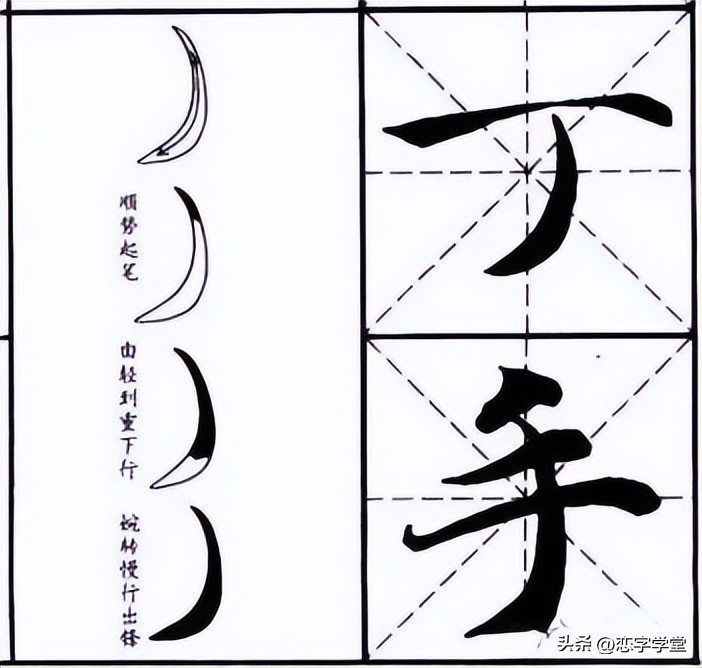 顺势起笔
由轻到重下行
转慢行出锋
丁
手
头条 @恋字学堂